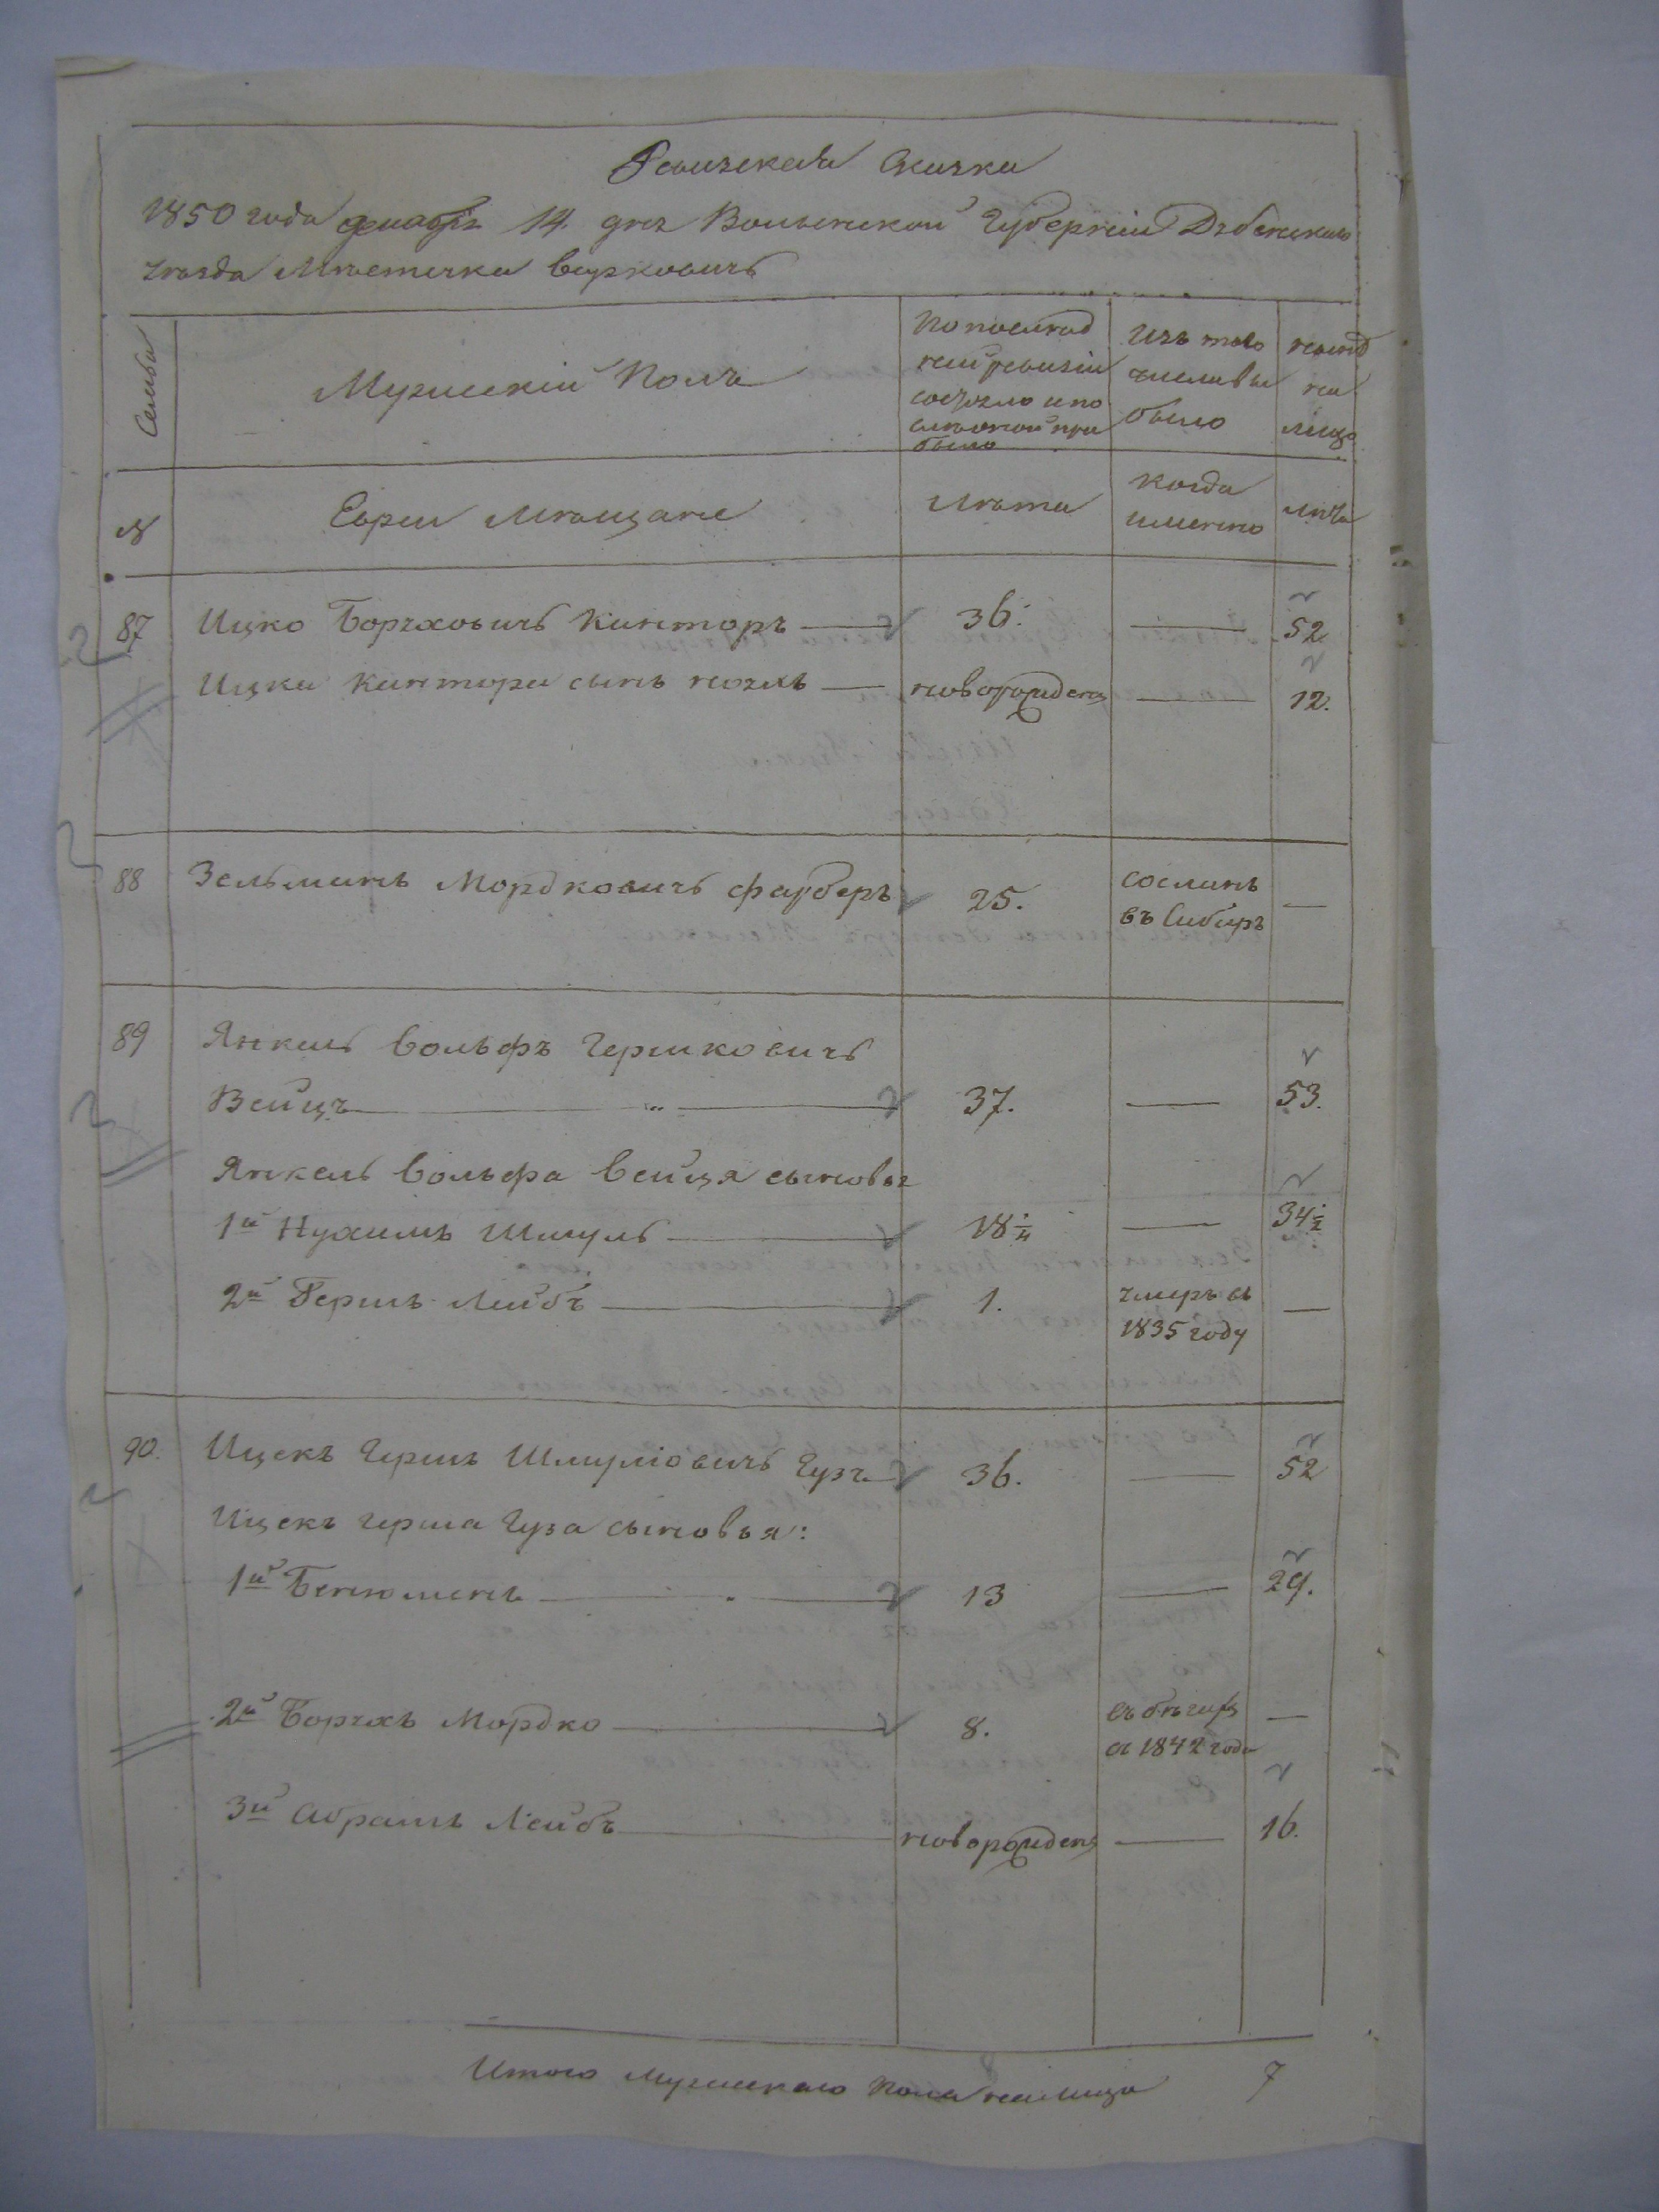 Ревизская Сказка
1850 года декабря 14 дня Волынской Губерніи Дубенскаго
уѣзда Мѣстечка Верковичь
Семьи
Мужескій Полъ
По послѣд
ней ревизіи
состояло и по
слѣ оной при
было
Изъ того
числа вы
было
нынѣ
на
лицо
№
Евреи Мѣщане
Лѣта
Когда
именно
Лѣта
87 Ицко Борухович Канторъ 36. — 52
Ицка Кантора сынъ Нохимъ новорожденъ — 12.
88 Зельманъ Мордковичъ Фарберъ 25. сосланъ въ Сибирь —
89 Янкель Вольфъ Гершковичъ
Вейцъ 37. — 53.
Янкель Вольфа Вейца сыновья
1й Нухимъ Шмуль 18½ — 34½
2й Гершъ Лейбъ 1. умеръ въ 1835 году —
90. Ицекъ Гершъ Шмулiовичъ Гузъ 36. — 52
Ицекъ Герша Гуза сыновья:
1й Бенюминъ 13 — 29.
2й Борухъ Мордко 8. въ бѣгахъ съ 1842 года —
3й Абрамъ Лейбъ новорожденъ — 16.
Итого мужескаго пола на лицо 7